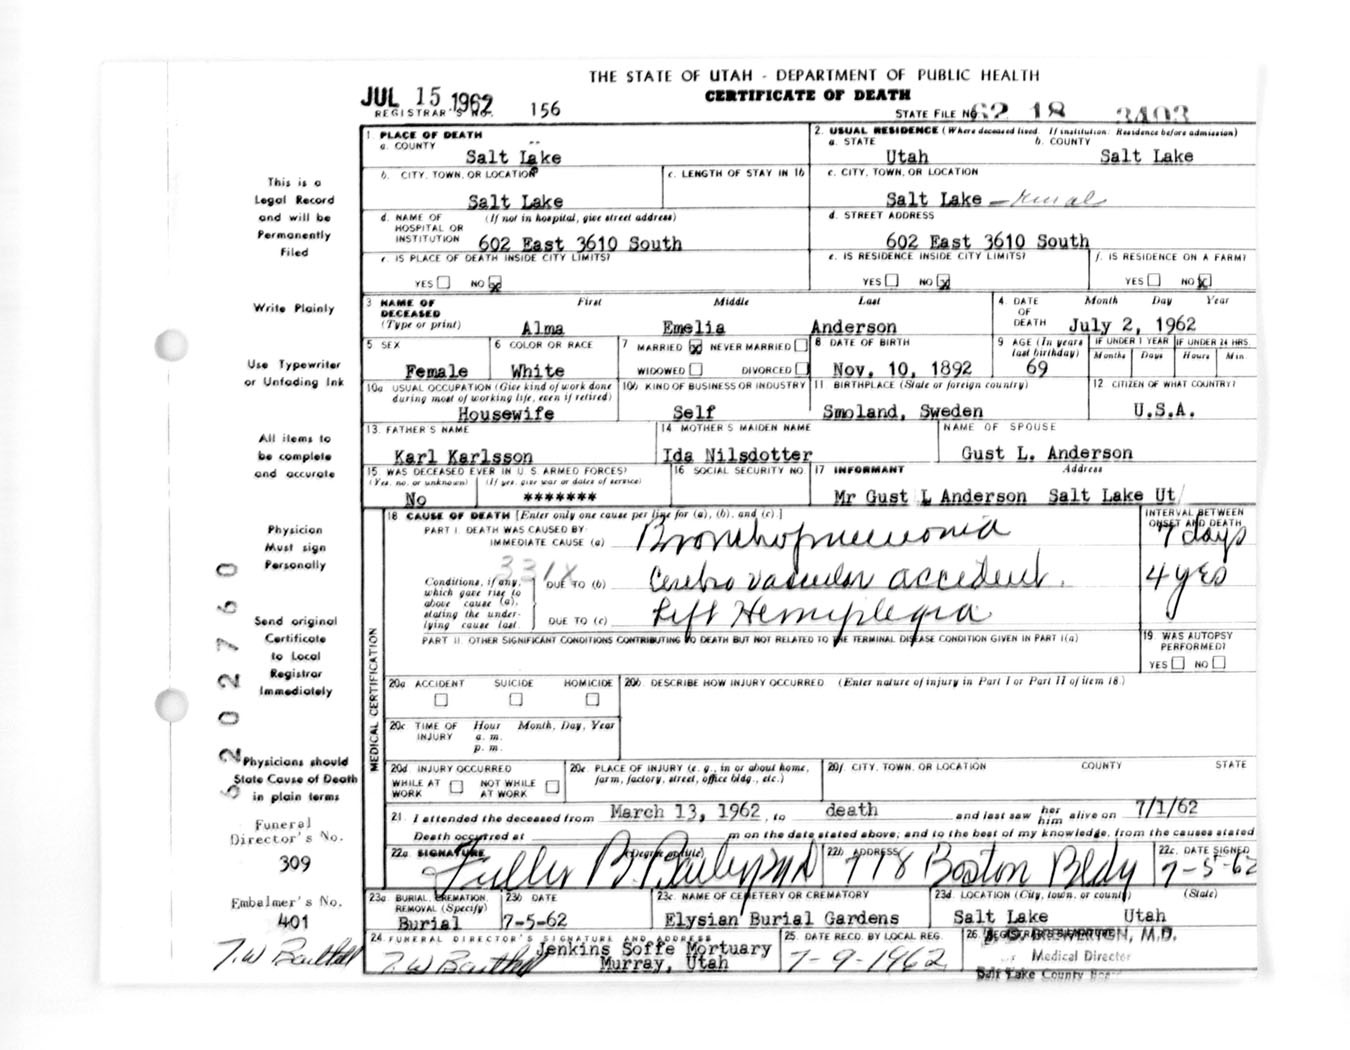 THE STATE OF UTAH - DEPARTMENT OF PUBLIC HEALTH
CERTIFICATE OF DEATH
JUL 15 1962
REGISTRAR'S NO. 156
STATE FILE NO. 62 18 3403
This is a
Legal Record
and will be
Permanently
Filed
Write Plainly
Use Typewriter
or Unfading Ink
All items to
be complete
and accurate
Physician
Must sign
Personally
Send original
Certificate
to Local
Registrar
Immediately
Physicians should
State Cause of Death
in plain terms
Funeral
Director's No.
309
Embalmer's No.
401
1. PLACE OF DEATH
a. COUNTY
Salt Lake
2. USUAL RESIDENCE (Where deceased lived. If institution: Residence before admission)
a. STATE b. COUNTY
Utah Salt Lake
b. CITY, TOWN, OR LOCATION
Salt Lake
c. LENGTH OF STAY IN 1b
c. CITY, TOWN, OR LOCATION
Salt Lake - rural
d. NAME OF HOSPITAL OR INSTITUTION (If not in hospital, give street address)
602 East 3610 South
d. STREET ADDRESS
602 East 3610 South
e. IS PLACE OF DEATH INSIDE CITY LIMITS?
YES NO x
e. IS RESIDENCE INSIDE CITY LIMITS?
YES NO x
f. IS RESIDENCE ON A FARM?
YES NO x
3 NAME OF DECEASED (Type or print)
First Middle Last
Alma Emelia Anderson
4. DATE OF DEATH Month Day Year
July 2, 1962
5 SEX
Female
6 COLOR OR RACE
White
7 MARRIED x NEVER MARRIED
WIDOWED DIVORCED
8 DATE OF BIRTH
Nov. 10, 1892
9 AGE (In years last birthday)
69
IF UNDER 1 YEAR IF UNDER 24 HRS.
Months Days Hours Min
10a USUAL OCCUPATION (Give kind of work done during most of working life, even if retired)
Housewife
10b KIND OF BUSINESS OR INDUSTRY
Self
11 BIRTHPLACE (State or foreign country)
Smoland, Sweden
12 CITIZEN OF WHAT COUNTRY?
U.S.A.
13. FATHER'S NAME
Karl Karlsson
14 MOTHER'S MAIDEN NAME
Ida Nilsdotter
NAME OF SPOUSE
Gust L. Anderson
15 WAS DECEASED EVER IN U.S. ARMED FORCES?
(Yes, no, or unknown) (If yes, give war or dates of service)
No *******
16 SOCIAL SECURITY NO.
17 INFORMANT Address
Mr Gust L Anderson Salt Lake Ut
MEDICAL CERTIFICATION
18 CAUSE OF DEATH [Enter only one cause per line for (a), (b), and (c).]
PART I. DEATH WAS CAUSED BY:
IMMEDIATE CAUSE (a) Bronchopneumonia
INTERVAL BETWEEN ONSET AND DEATH
7 days
331X
Conditions, if any, which gave rise to above cause (a), stating the underlying cause last.
DUE TO (b) Cerebro vascular accident.
4 yrs
DUE TO (c) Left Hemiplegia
PART II. OTHER SIGNIFICANT CONDITIONS CONTRIBUTING TO DEATH BUT NOT RELATED TO THE TERMINAL DISEASE CONDITION GIVEN IN PART I(a)
19. WAS AUTOPSY PERFORMED?
YES NO
20a ACCIDENT SUICIDE HOMICIDE
20b DESCRIBE HOW INJURY OCCURRED (Enter nature of injury in Part I or Part II of item 18.)
20c TIME OF INJURY Hour Month, Day, Year
a. m.
p. m.
20d INJURY OCCURRED
WHILE AT WORK NOT WHILE AT WORK
20e PLACE OF INJURY (e. g., in or about home, farm, factory, street, office bldg., etc.)
20f. CITY, TOWN, OR LOCATION COUNTY STATE
21. I attended the deceased from March 13, 1962, to death and last saw her him alive on 7/1/62
Death occurred at m on the date stated above; and to the best of my knowledge, from the causes stated
22a. SIGNATURE (Degree or title)
Fuller B. Bailey MD
22b ADDRESS
718 Boston Bldg
22c. DATE SIGNED
7-5-62
23a. BURIAL, CREMATION, REMOVAL (Specify)
Burial
23b DATE
7-5-62
23c. NAME OF CEMETERY OR CREMATORY
Elysian Burial Gardens
23d. LOCATION (City, town, or county) (State)
Salt Lake Utah
24 FUNERAL DIRECTOR'S SIGNATURE AND ADDRESS
Jenkins Soffe Mortuary
Murray, Utah
25. DATE RECD. BY LOCAL REG.
7-9-1962
26. REGISTRAR'S SIGNATURE
Medical Director
Salt Lake County